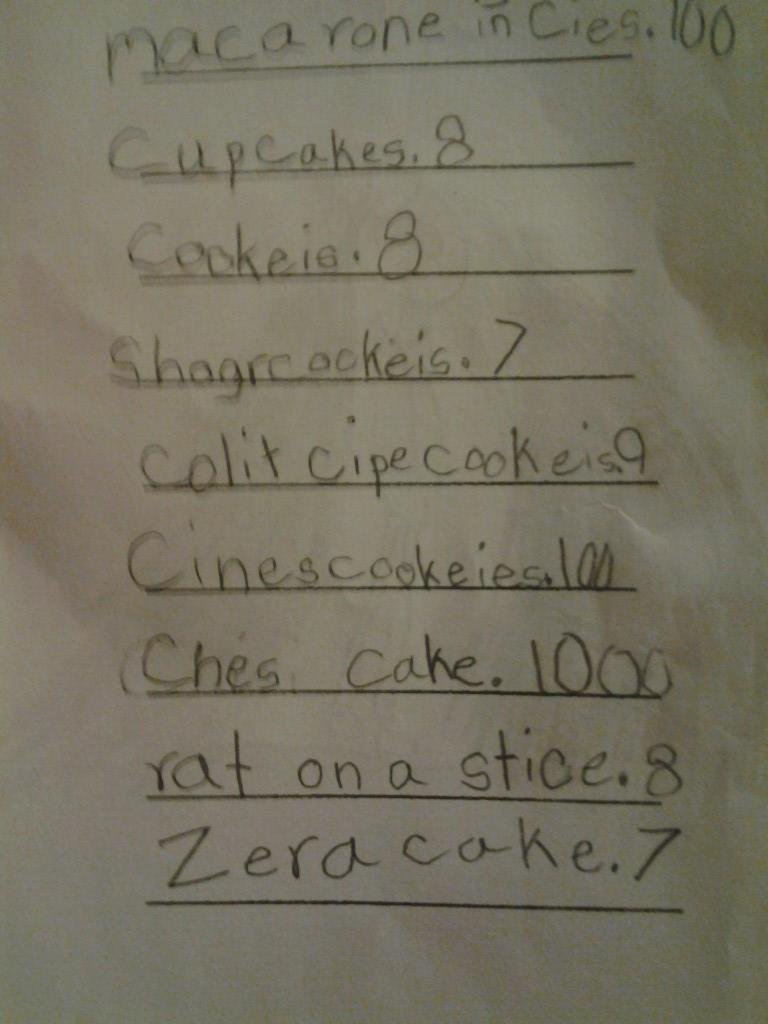 macarone in Cies. 100
Cupcakes. 8
Cookeis. 8
Shagrcookeis. 7
colit cipe cookeis. 9
Cinescookeies. 100
Ches cake. 1000
rat on a stice. 8
Zera cake. 7